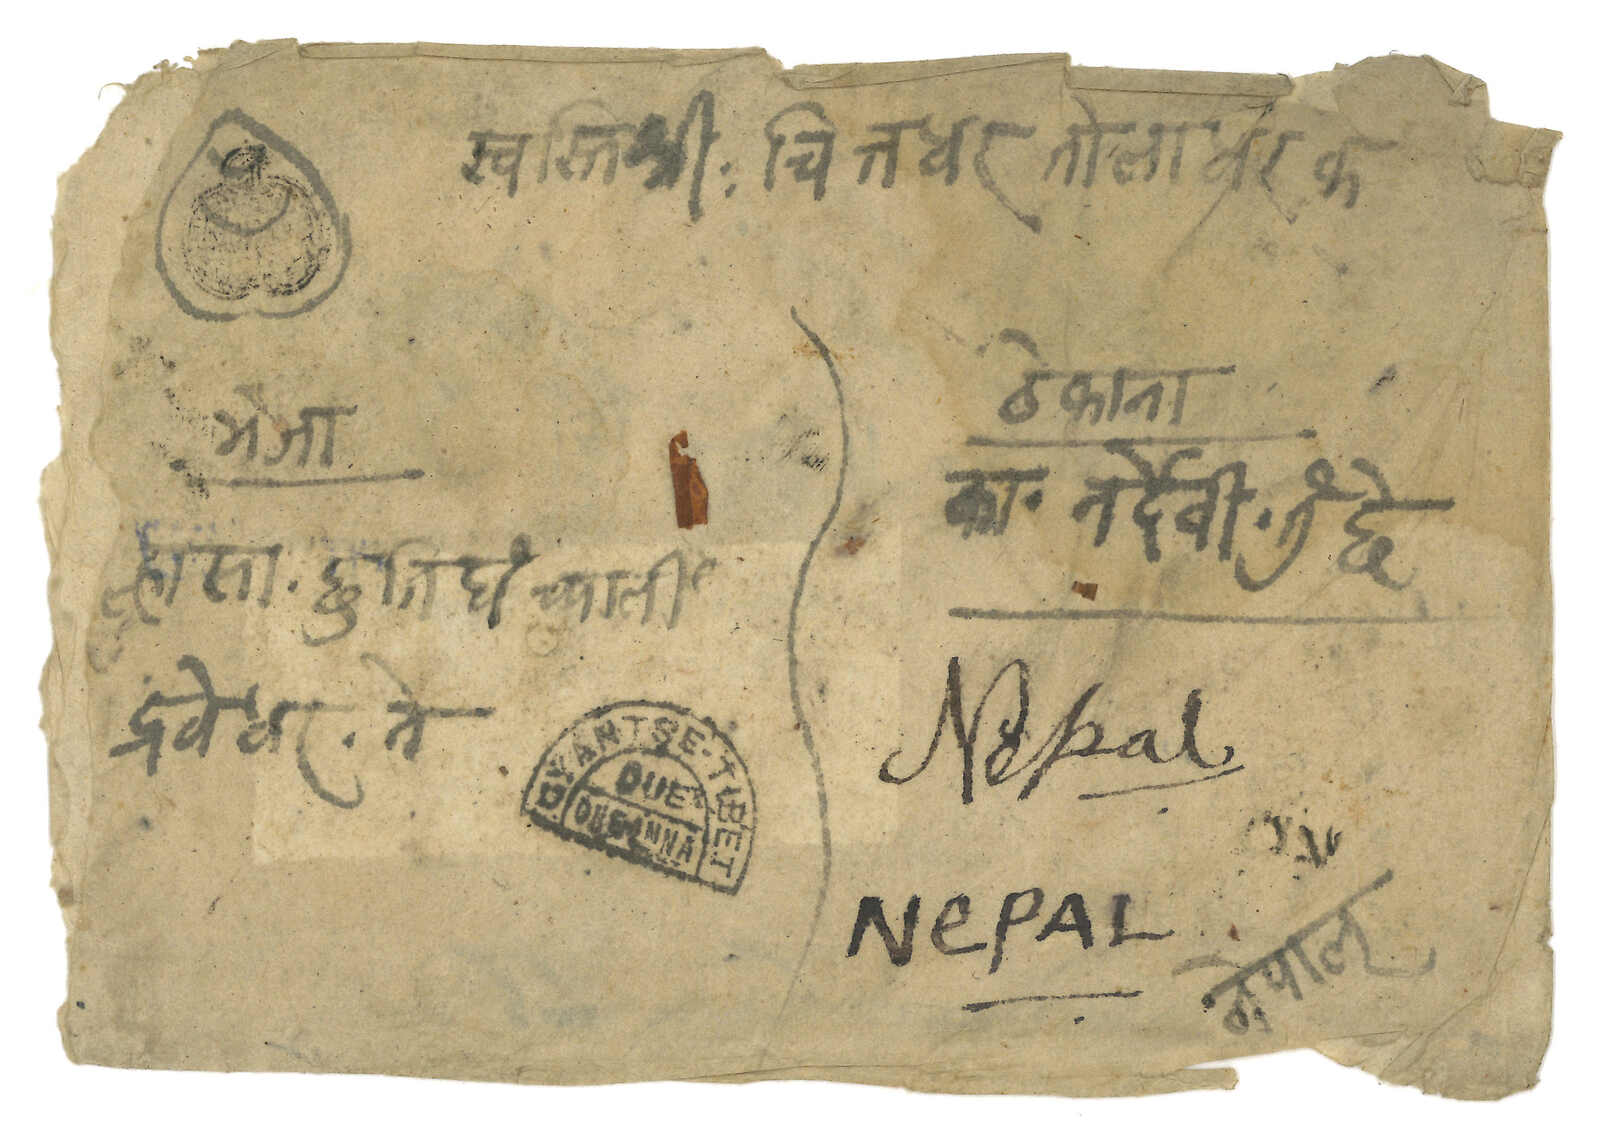 स्वस्तिश्री. चित्तधर तोलाधर के
भेजा
ठेकाना
ल्हासा. छुसिघं
का. नर्देवी. तुं छे
Nepal
GYANTSE-TIBET
DUE
ONE ANNA
NePAL
नेपाल